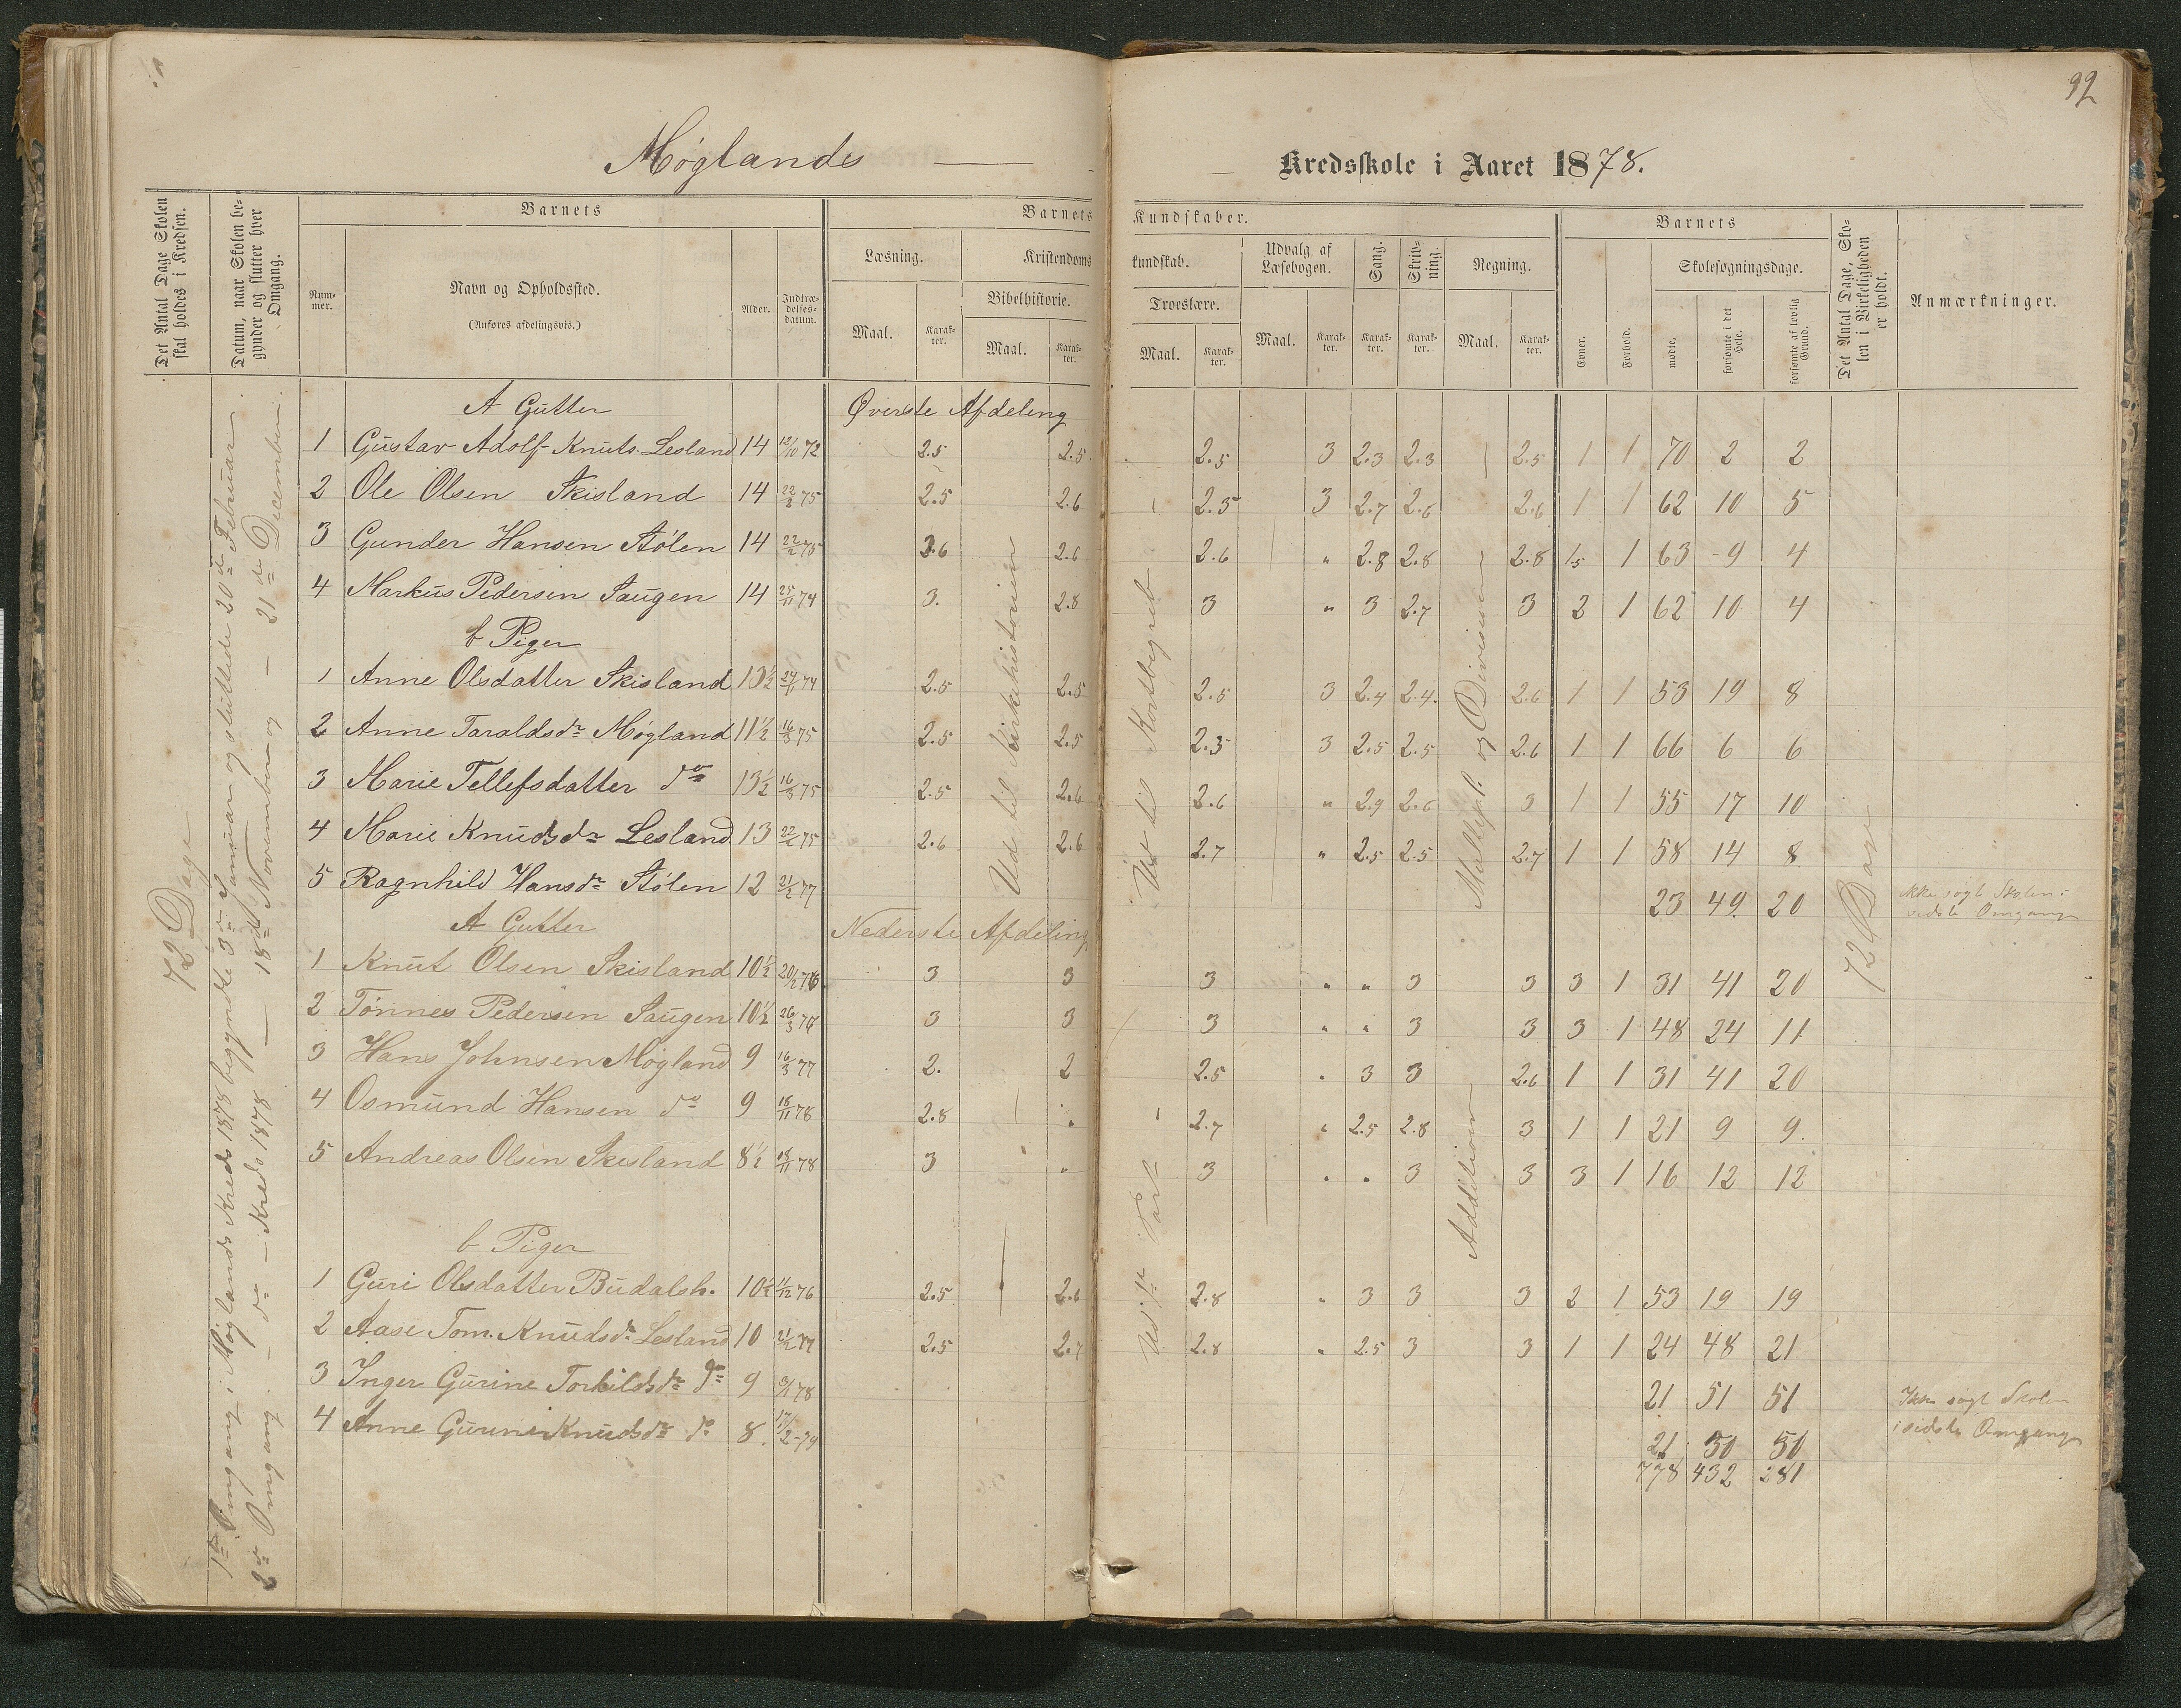 92
Møglands — Kredsskole i Aaret 1878.
Det Antal Dage Skolen skal holdes i Kredsen.
Datum, naar Skolen begynder og slutter hver Omgang.
Barnets
Nummer.
Navn og Opholdssted.
(Anføres afdelingsvis.)
Alder.
Indtrædelses-datum.
Barnets Kundskaber.
Læsning.
Maal.
Karakter.
Kristendomskundskab.
Bibelhistorie.
Maal.
Karakter.
Troeslære.
Maal.
Karakter.
Udvalg af Læsebogen.
Maal.
Karakter.
Sang.
Karakter.
Skrivning.
Karakter.
Regning.
Maal.
Karakter.
Barnets
Evner.
Forhold.
Skolesøgningsdage.
mødte.
forsømte i det Hele.
forsømte af lovlig Grund.
Det Antal Dage, Skolen i Virkeligheden er holdt.
Anmærkninger.
72 Dage
1ste Omgang i Møglands Kreds 1878 begyndte 3die Januar og sluttede 20de Februar.
2den Omgang - do - Kreds 1878 — 18de November og — 21de December.
A Gutter Øverste Afdeling
1 Gustav Adolf Knuts. Lesland 14 12/10 72 2.5 2.5 2.5 3 2.3 2.3 2.5 1 1 70 2 2
2 Ole Olsen Skisland 14 22/2 75 2.5 2.6 2.5 3 2.7 2.6 2.6 1 1 62 10 5
3 Gunder Hansen Stølen 14 22/2 75 2.6 2.6 2.6 " 2.8 2.8 2.8 1.5 1 63 9 4
4 Markus Pedersen Saugen 14 25/11 74 3. 2.8 3 " 3 2.7 3 2 1 62 10 4
b Piger
1 Anne Olsdatter Skisland 13½ 24/11 74 2.5 2.5 2.5 3 2.4 2.4. 2.6 1 1 53 19 8
2 Anne Taraldsdr Møgland 11½ 16/3 75 2.5 2.5 2.5 3 2.5 2.5 2.6 1 1 66 6 6
3 Marie Tellefsdatter do 13½ 16/3 75 2.5 2.6 2.6 " 2.9 2.6 3 1 1 55 17 10
4 Marie Knudsdr Lesland 13 22/2 75 2.6 2.6 2.7 " 2.5 2.5 2.7 1 1 58 14 8
5 Ragnhild Hansdr Stølen 12 21/2 77 23 49 20 ikke søgt Skolen i sidste Omgang
Ud til Kirkehistorien
Multipl. og Division
72 Dage
A Gutter Nederste Afdeling
1 Knut Olsen Skisland 10½ 20/12 76 3 3 3 " " 3 3 3 1 31 41 20
2 Tønnes Pedersen Saugen 10½ 26/3 76 3 3 3 " " 3 3 3 1 48 24 11
3 Hans Johnsen Møgland 9 16/3 77 2. 2 2.5 " 3 3 2.6 1 1 31 41 20
4 Osmund Hansen do 9 18/11 78 2.8 " 2.7 " 2.5 2.8 3 1 1 21 9 9.
5 Andreas Olsen Skisland 8½ 18/11 78 3 " 3 " " 3 3 3 1 16 12 12
Ud 1ste Part
Addition
b Piger
1 Guri Olsdatter Budalsh. 10½ 11/12 76 2.5 2.6 2.8 " 3 3 3 2 1 53 19 19
2 Aase Tom. Knudsdr Lesland 10 21/2 77 2.5 2.7 2.8 " 2.5 3 3 1 1 24 48 21
3 Inger Gurine Torkildsdr do 9 9/1 78 21 51 51 Ikke søgt Skolen
4 Anne Gurine Knudsdr do 8. 17/2-79 21 50 50 i sidste Omgang
778 432 281